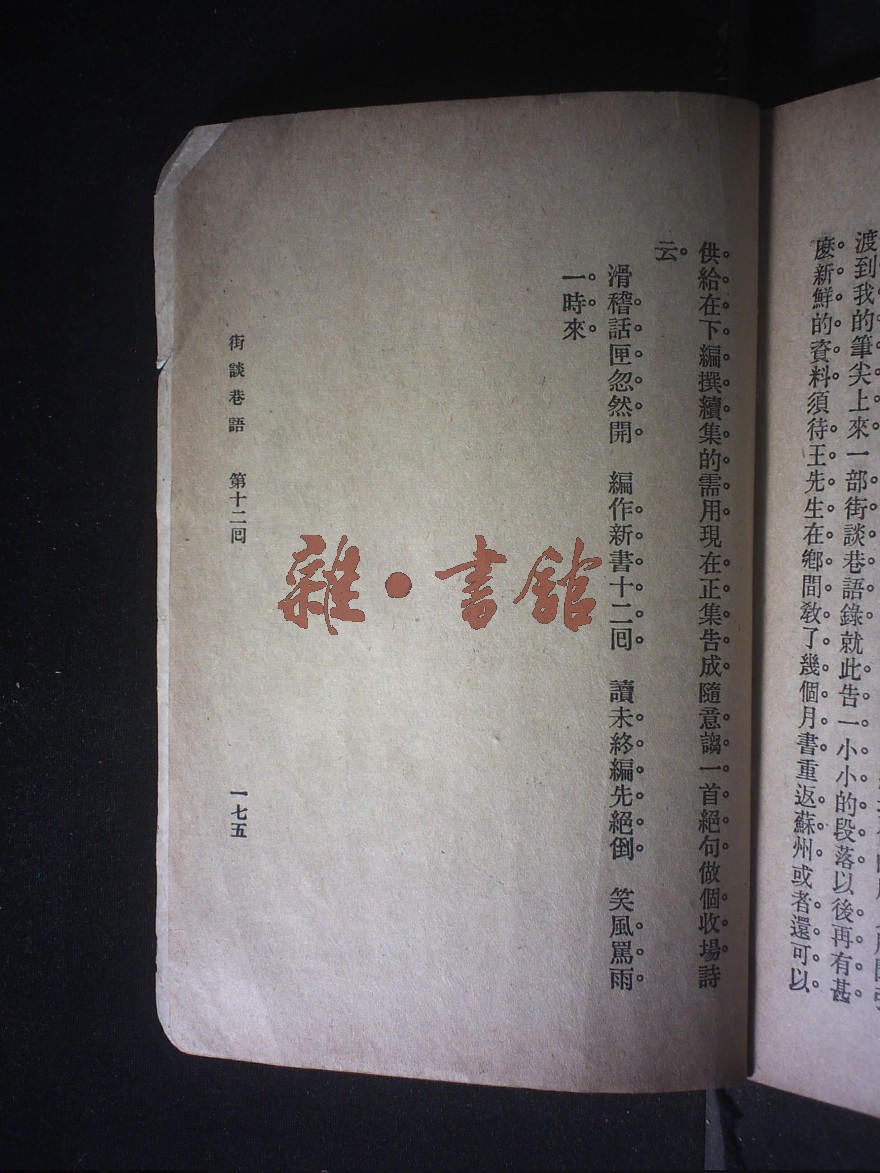 渡到我的筆尖上來一部街談巷語錄就此告一小小的段落以後再有甚
麽新鮮的資料須待王先生在鄕間敎了幾個月書重返蘇州或者還可以
供給在下編撰續集的需用現在正集告成隨意謅一首絕句做個收場詩
云。
滑稽話匣忽然開 編作新書十二囘 讀未終編先絕倒 笑風罵雨
一時來
街談巷語 第十二囘 一七五
雜·書館